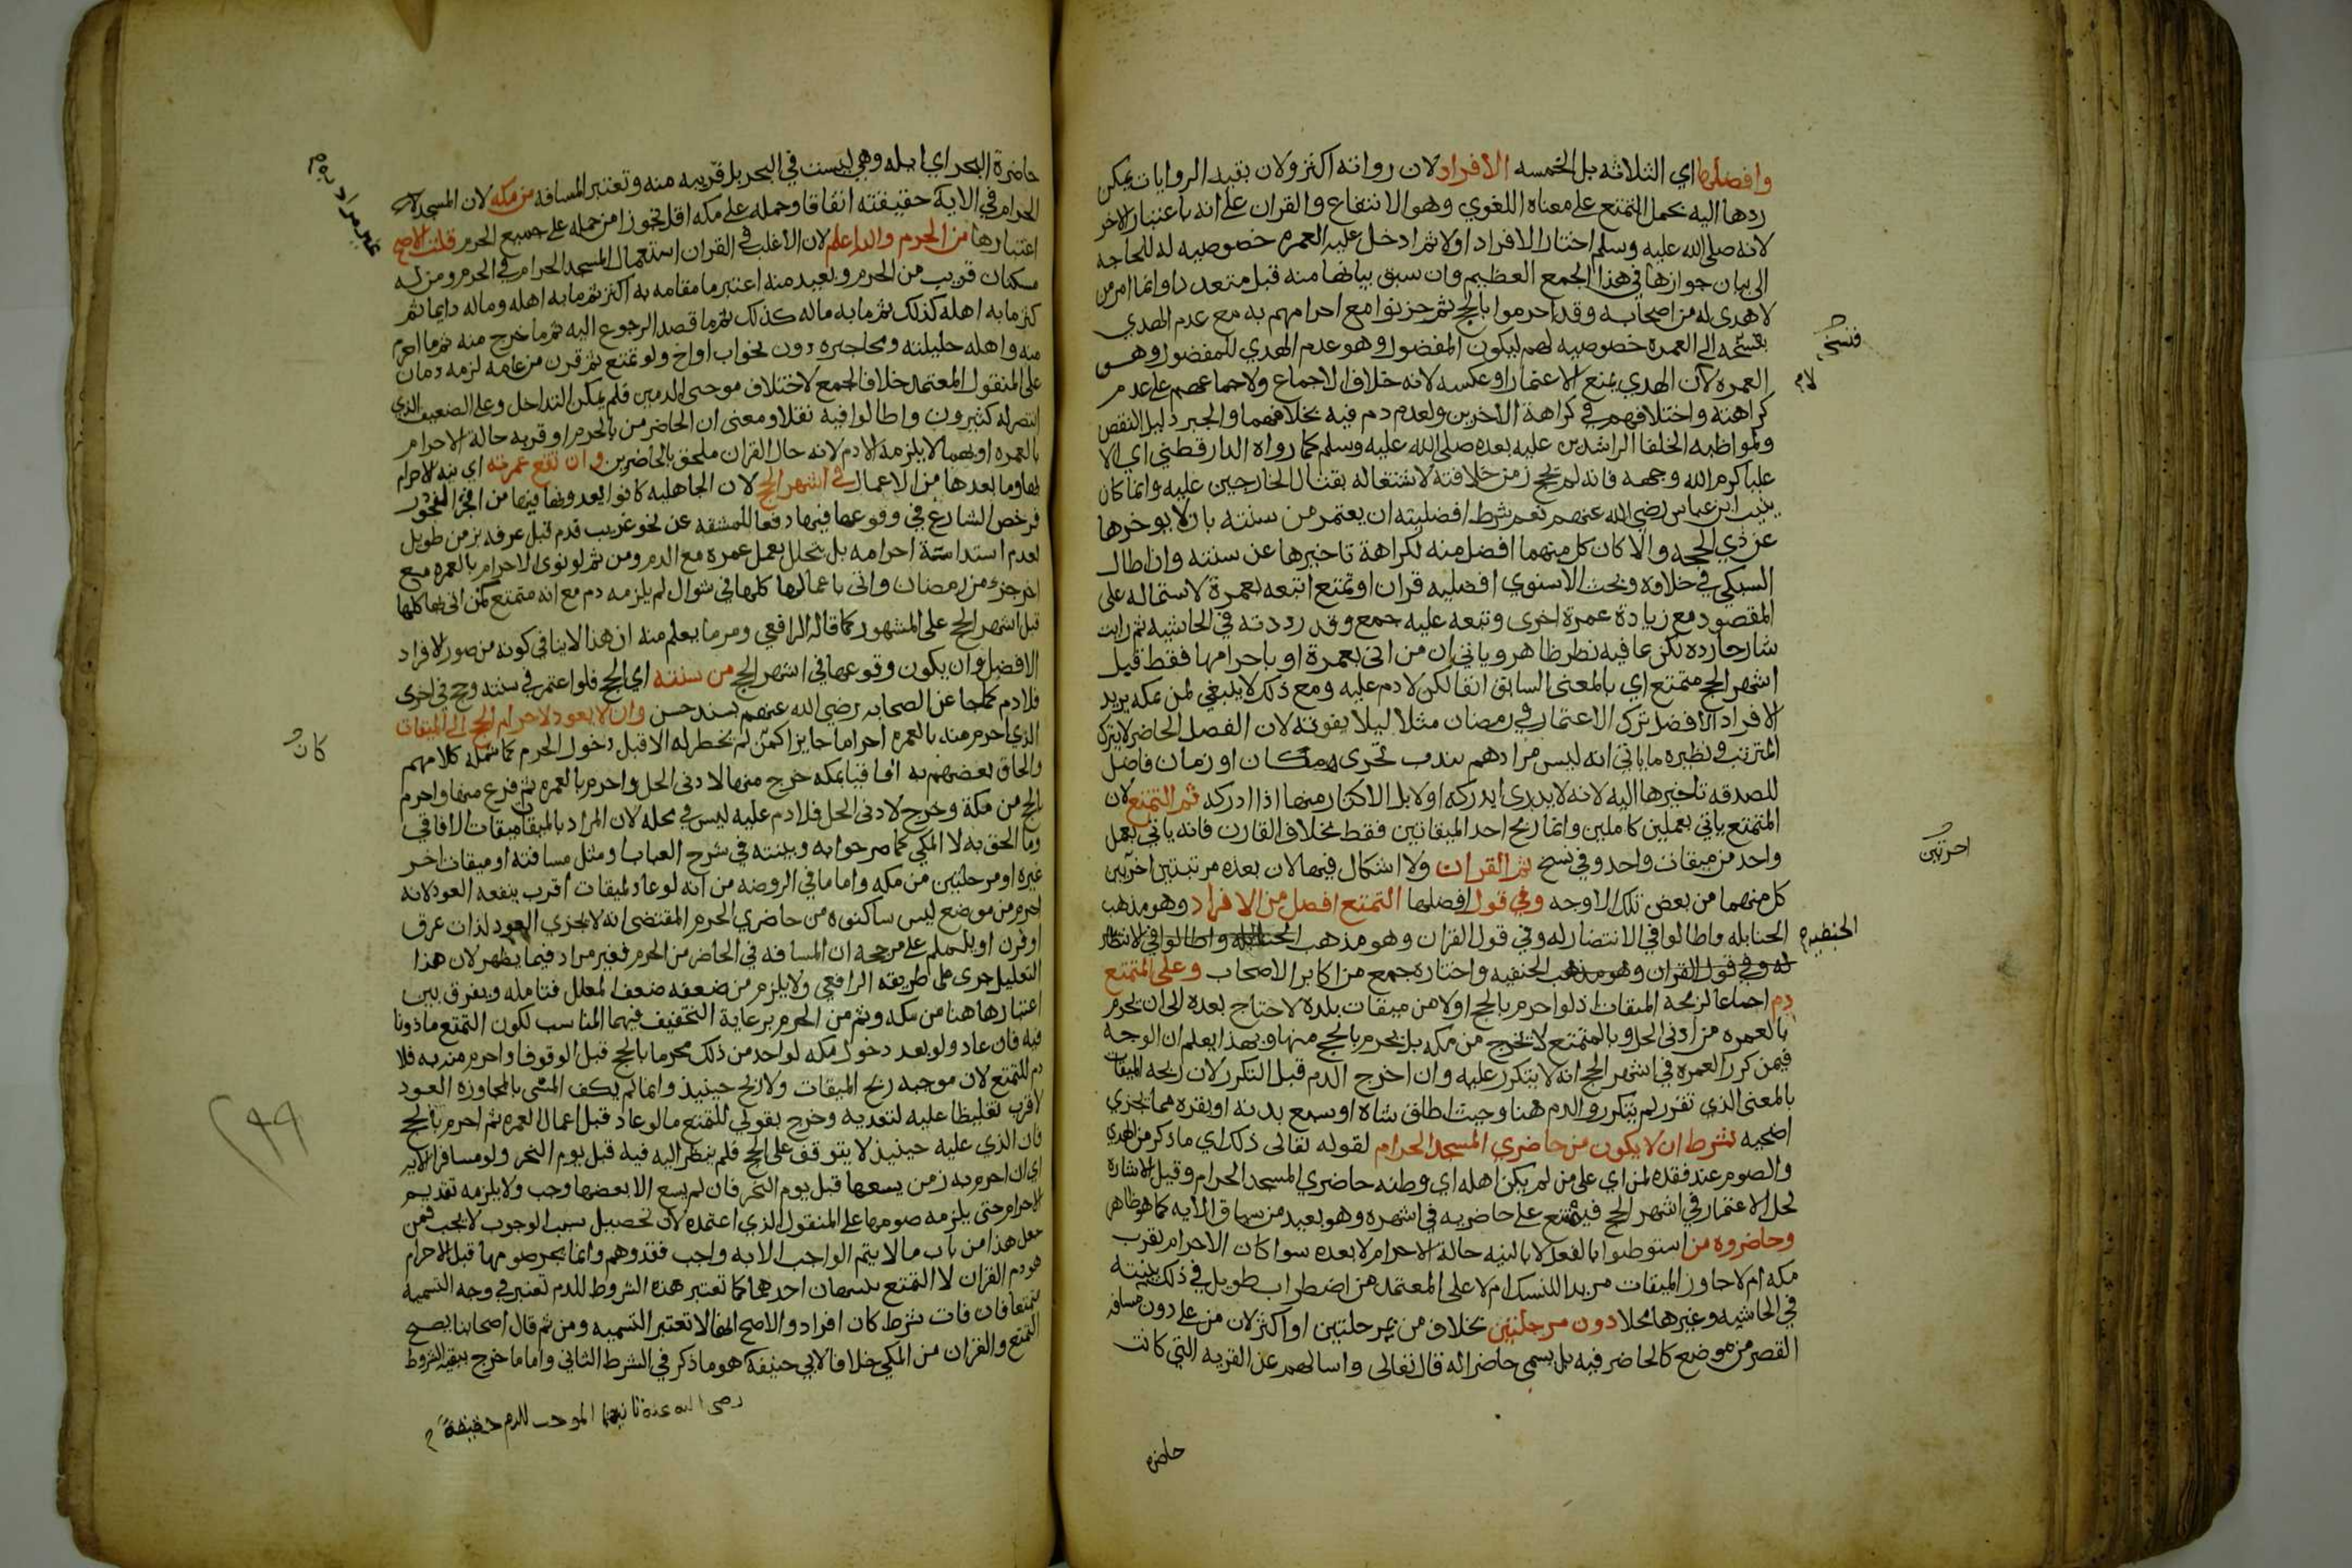 وافضلها اي الثلاثه بل الخمسه الافراد لان رواته اكثر ولان بقيه الروايات يمكن
ردها اليه بحمل التمتع على معناه اللغوي وهو الانتفاع والقران على انه باعتبار الاخر
لانه صلى الله عليه وسلم اختار الافراد اولا ثم ادخل عليه العمره خصوصيه له للحاجه
الى بيان جوازها في هذا الجمع العظيم وان سبق بيانها منه قبل متعددا وانما امر من
لا هدى له من اصحابه وقد احرموا بالحج ثم حزنوا مع احرامهم به مع عدم الهدي
بفسخه الى العمره خصوصيه لهم ليكون المفضول وهو عدم الهدي للمفضول وهو
فسخ
العمره لان الهدي يمنع الاعتمار او عكسه لانه خلاف الاجماع ولاجماعهم على عدم
لام
كراهته واختلافهم في كراهة الاخرين ولعدم دم فيه بخلافهما والجبر دليل النقص
ولمواظبه الخلفا الراشدين عليه بعده صلى الله عليه وسلم كما رواه الدارقطني اي الا
عليا كرم الله وجهه فانه لم يحج زمن خلافته لاشتغاله بقتال الخارجين عليه وانما كان
ينيب ابن عباس رضي الله عنهم نعم شرط افضليته ان يعتمر من سنته بان لا يوخرها
عن ذي الحجه والا كان كل منهما افضل منه لكراهة تاخيرها عن سنته وان اطال
السبكي في خلافه وبحث الاسنوي افضليه قران او تمتع اتبعه بعمرة لاشتماله على
المقصود مع زيادة عمرة اخرى وتبعه عليه جمع وقد رددته في الحاشيه ثم رايت
شارحا رده لكن بما فيه نظر ظاهر وياتي ان من اتى بعمرة او باحرامها فقط قبل
اشهر الحج متمتع اي بالمعنى السابق اتفا لكن لا دم عليه ومع ذلك لا ينبغي لمن بمكه يريد
الافراد الافضل ترك الاعتمار في رمضان مثلا ليلا يفوته لان الفضل الحاضر لا يترك
المترتب ونظيره ما ياتي انه ليس مرادهم بندب تحري مكان او زمان فاضل
للصدقه تاخيرها اليه لانه لا يدري ايدركه اولا بل الاكثار منها اذا ادركه ثم التمتع لان
المتمتع ياتي بعملين كاملين وانما ربح احد الميقاتين فقط بخلاف القارن فانه ياتي بعمل
واحد من ميقات واحد وفي نسخ ثم القران ولا اشكال فيها لان بعده مرتبتين اخرتين
اخرتين
كل منهما من بعض تلك الاوجه وفي قول افضلها التمتع افضل من الافراد وهو مذهب
الحنابله واطالوا في الانتصار له وفي قول القران وهو مذهب الحنابله واطالوا في الانتصار
الحنفيه
له وفي قول القران وهو مذهب الحنفيه واختاره جمع من اكابر الاصحاب وعلى المتمتع
دم اجماعا لربحه الميقات اذ لو احرم بالحج اولا من ميقات بلده لاحتاج بعده الى ان يحرم
بالعمره من ادنى الحل وبالتمتع لا يخرج من مكه بل يحرم بالحج منها وبهذا يعلم ان الوجه
فيمن كرر العمره في اشهر الحج انه لا يتكرر عليه وان اخرج الدم قبل التكرر لان ربحه الميقات
بالمعنى الذي تقرر لم يتكرر والدم هنا وحيث اطلق شاه او سبع بدنه او بقره مما يجزي
اضحيه بشرط ان لا يكون من حاضري المسجد الحرام لقوله تعالى ذلك اي ما ذكر من الهدي
والصوم عند فقده لمن اي على من لم يكن اهله اي وطنه حاضري المسجد الحرام وقيل الاشارة
لحل الاعتمار في اشهر الحج فيمتنع على حاضريه في اشهره وهو بعيد من سياق الايه كما هو ظاهر
وحاضروه من استوطنوا بالفعل لا بالنيه حالة الاحرام لا بعده سوا كان الاحرام بقرب
مكه ام لا جاوز الميقات مريدا للنسك ام لا على المعتمد من اضطراب طويل في ذلك بينته
في الحاشيه وغيرها محلا دون مرحلتين بخلاف من بمرحلتين او اكثر لان من على دون مسافه
القصر من موضع كالحاضر فيه بل يسمى حاضرا له قال تعالى واسالهم عن القريه التي كانت
حاضره
حاضرة البحر اي ايله وهي ليست في البحر بل قريبه منه وتعتبر المسافه من مكه لان المسجد
الحرام في الاية حقيقته اتفاقا وحمله على مكه اقل تجوزا من حمله على جميع الحرم قلت الاصح
غير مراد
اعتبارها من الحرم والله اعلم لان الاغلب في القران استعمال المسجد الحرام في الحرم ومن له
مسكنان قريب من الحرم وبعيد منه اعتبر ما مقامه به اكثر ثم ما به اهله وماله دايما ثم
كثر ما به اهله كذلك ثم ما به ماله كذلك ثم ما قصد الرجوع اليه ثم ما خرج منه ثم ما احرم
منه واهله حليلته ومحاجيره دون نحو اب او اخ ولو تمتع ثم قرن من عامه لزمه دمان
على المنقول المعتمد خلافا لجمع لاختلاف موجبى الدمين فلم يمكن التداخل وعلى الضعيف الذي
انتصر له كثيرون واطالوا فيه نقلا ومعنى ان الحاضر من بالحرم او قربه حالة الاحرام
بالعمره او بهما لا يلزمه الا دم لانه حال القران ملحق بالحاضرين وان تقع عمرته اي نيه الاحرام
بها وما بعدها من الاعمال في اشهر الحج لان الجاهليه كانوا يعدونها فيها من افجر الفجور
فرخص الشارع في وقوعها فيها دفعا للمشقه عن نحو غريب قدم قبل عرفه بزمن طويل
لعدم استدامة احرامه بل يتحلل بعمل عمره مع الدم ومن ثم لو نوى الاحرام بالعمره مع
اخر جزء من رمضان واتى باعمالها كلها في شوال لم يلزمه دم مع انه متمتع كمن اتى بها كلها
قبل اشهر الحج على المشهور كما قاله الرافعي ومر ما يعلم منه ان هذا لا ينافي كونه من صور الافراد
الافضل وان يكون وقوعها في اشهر الحج من سنته اي الحج فلو اعتمر في سنه وحج في اخرى
فلا دم كما جا عن الصحابه رضي الله عنهم بسند حسن وان لا يعود لاحرام الحج الى الميقات
الذي احرم منه بالعمره احراما جايزا كمن لم يخطر له الا قبل دخول الحرم كما شمله كلامهم
كان
والحاق بعضهم به افاقيا بمكه خرج منها لادنى الحل واحرم بالعمره ثم فرغ منها واحرم
بالحج من مكة وخرج لادنى الحل فلا دم عليه ليس في محله لان المراد بالميقات ميقات الافاقي
وما الحق به لا المكي كما صرحوا به وبينته في شرح العباب ومثل مسافته او ميقات اخر
غيره او مرحلتين من مكه واما ما في الروضه من انه لو عاد لميقات اقرب ينفعه العود لانه
احرم من موضع ليس ساكنوه من حاضري الحرم المقتضى انه لا يجزي العود لذات عرق
او قرن او يلملم على مرجحه ان المسافه في الحاضر من الحرم فغير مراد فيما يظهر لان هذا
التعليل جرى على طريقه الرافعي ولا يلزم من ضعفه ضعف المعلل فتامله ويفرق بين
اعتبارها هنا من مكه وثم من الحرم برعاية التخفيف فيهما المناسب لكون التمتع ماذونا
فيه فان عاد ولو بعد دخول مكه لواحد من ذلك محرما بالحج قبل الوقوف او احرم منه به فلا
دم للتمتع لان موجبه ربح الميقات ولا ربح حينيذ وانما لم يكف المسي بالمجاوزه العود
لاقرب تغليظا عليه لتعديه وخرج بقولي للتمتع ما لو عاد قبل اعمال العمره ثم احرم بالحج
٢٩٩
فان الذي عليه حينيذ لا يتوقف على الحج فلم ينظر اليه فيه قبل يوم النحر ولو مسافرا للايه
اي ان احرم به زمن يسعها قبل يوم النحر فان لم يسع الا بعضها وجب ولا يلزمه تقديم
الاحرام حتى يلزمه صومها على المنقول الذي اعتمده لان تحصيل سبب الوجوب لا يجب فمن
جعل هذا من باب ما لا يتم الواجب الا به واجب فقد وهم وانما يحرم صومها قبل الاحرام
هو دم القران لا التمتع احدهما كما تعتبر هذه الشروط للدم تعتبر في وجه التسمية
تمتعا فان فات شرط كان افراد والاصح انها لا تعتبر التسميه ومن ثم قال اصحابنا يصح
التمتع والقران من المكي خلافا لابي حنيفة هو ما ذكر في الشرط الثاني واما ما خرج ببقيه الشروط
رضى الله عنه ثانيهما الموجب للدم حقيقة